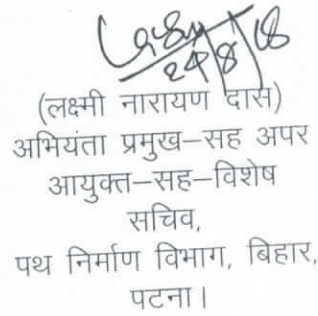 24/8/18
(लक्ष्मी नारायण दास)
अभियंता प्रमुख–सह अपर
आयुक्त–सह–विशेष
सचिव,
पथ निर्माण विभाग, बिहार,
पटना।